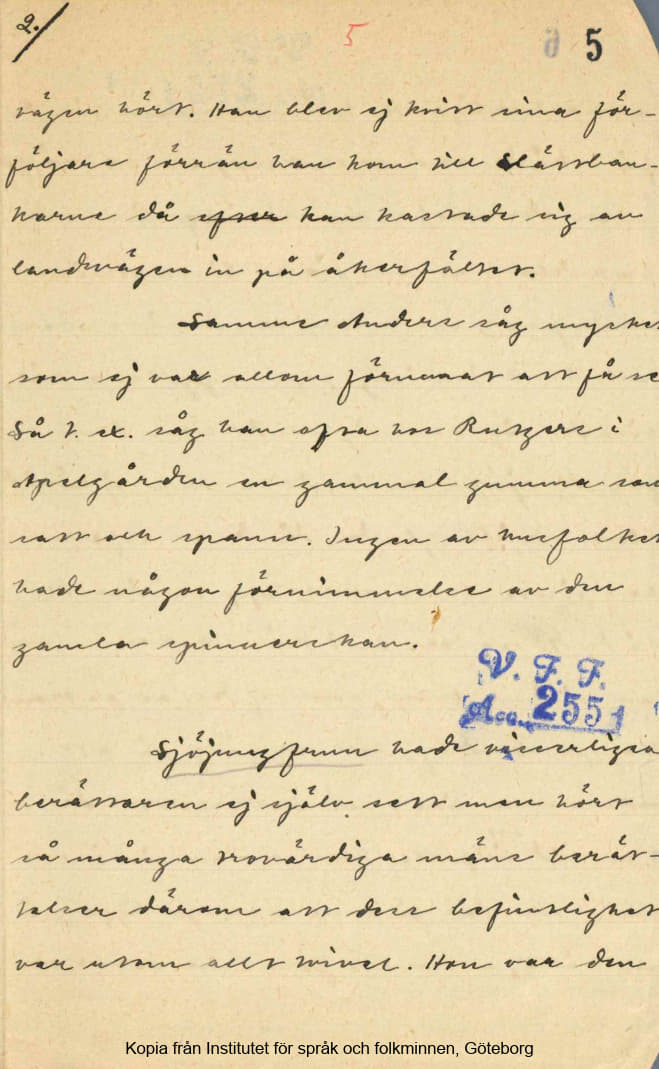 2.
5
6 5
vägen hört. Han blev ej kvitt sina för-
följare förrän han kom till Slättban-
karne då efter han kastade sig av
landsvägen in på åkerfältet.
Samme Anders såg mycket
som ej var allom förunnat att få se
Så t. ex. såg han ofta hos Rutgers i
Apelgården en gammal gumma som
satt och spann. Ingen av husfolket
hade någon förnimmelse av den
gamla spinnerskan.
V. F. F.
Acc. 2551
Sjöjungfrun hade visserligen
berättaren ej själv sett men hört
så många trovärdiga mäns berät-
telser därom att dess befintlighet
var utom allt tvivel. Hon var den
Kopia från Institutet för språk och folkminnen, Göteborg